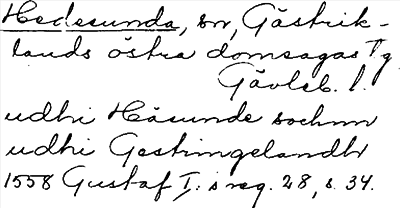 Hedesunda, sn, Gästrik-
lands östra domsagas Tg
Gävleb. l.
udhi Häsunde sochnn
udhi Gestringelandh
1558 Gustaf I:s reg. 28, s. 34.